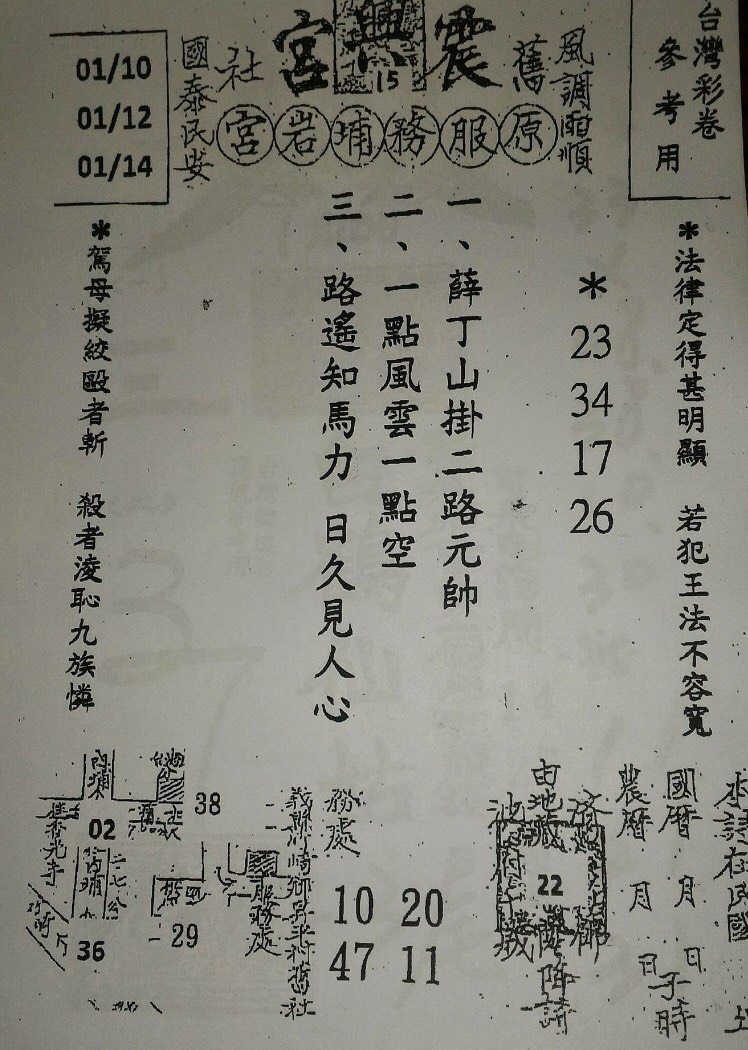 台灣彩卷
參考用
風調雨順
舊
震興宮
15
社
國泰民安
01/10
01/12
01/14
原服務埔岩宮
＊法律定得甚明顯 若犯王法不容寬
＊
23
34
17
26
一、薛丁山掛二路元帥
二、一點風雲一點空
三、路遙知馬力 日久見人心
＊駕母擬絞毆者斬 殺者淩恥九族憐
國曆 月 日子時
農曆 月 日
22
務處
10 20
47 11
服務處
38
02
29
36